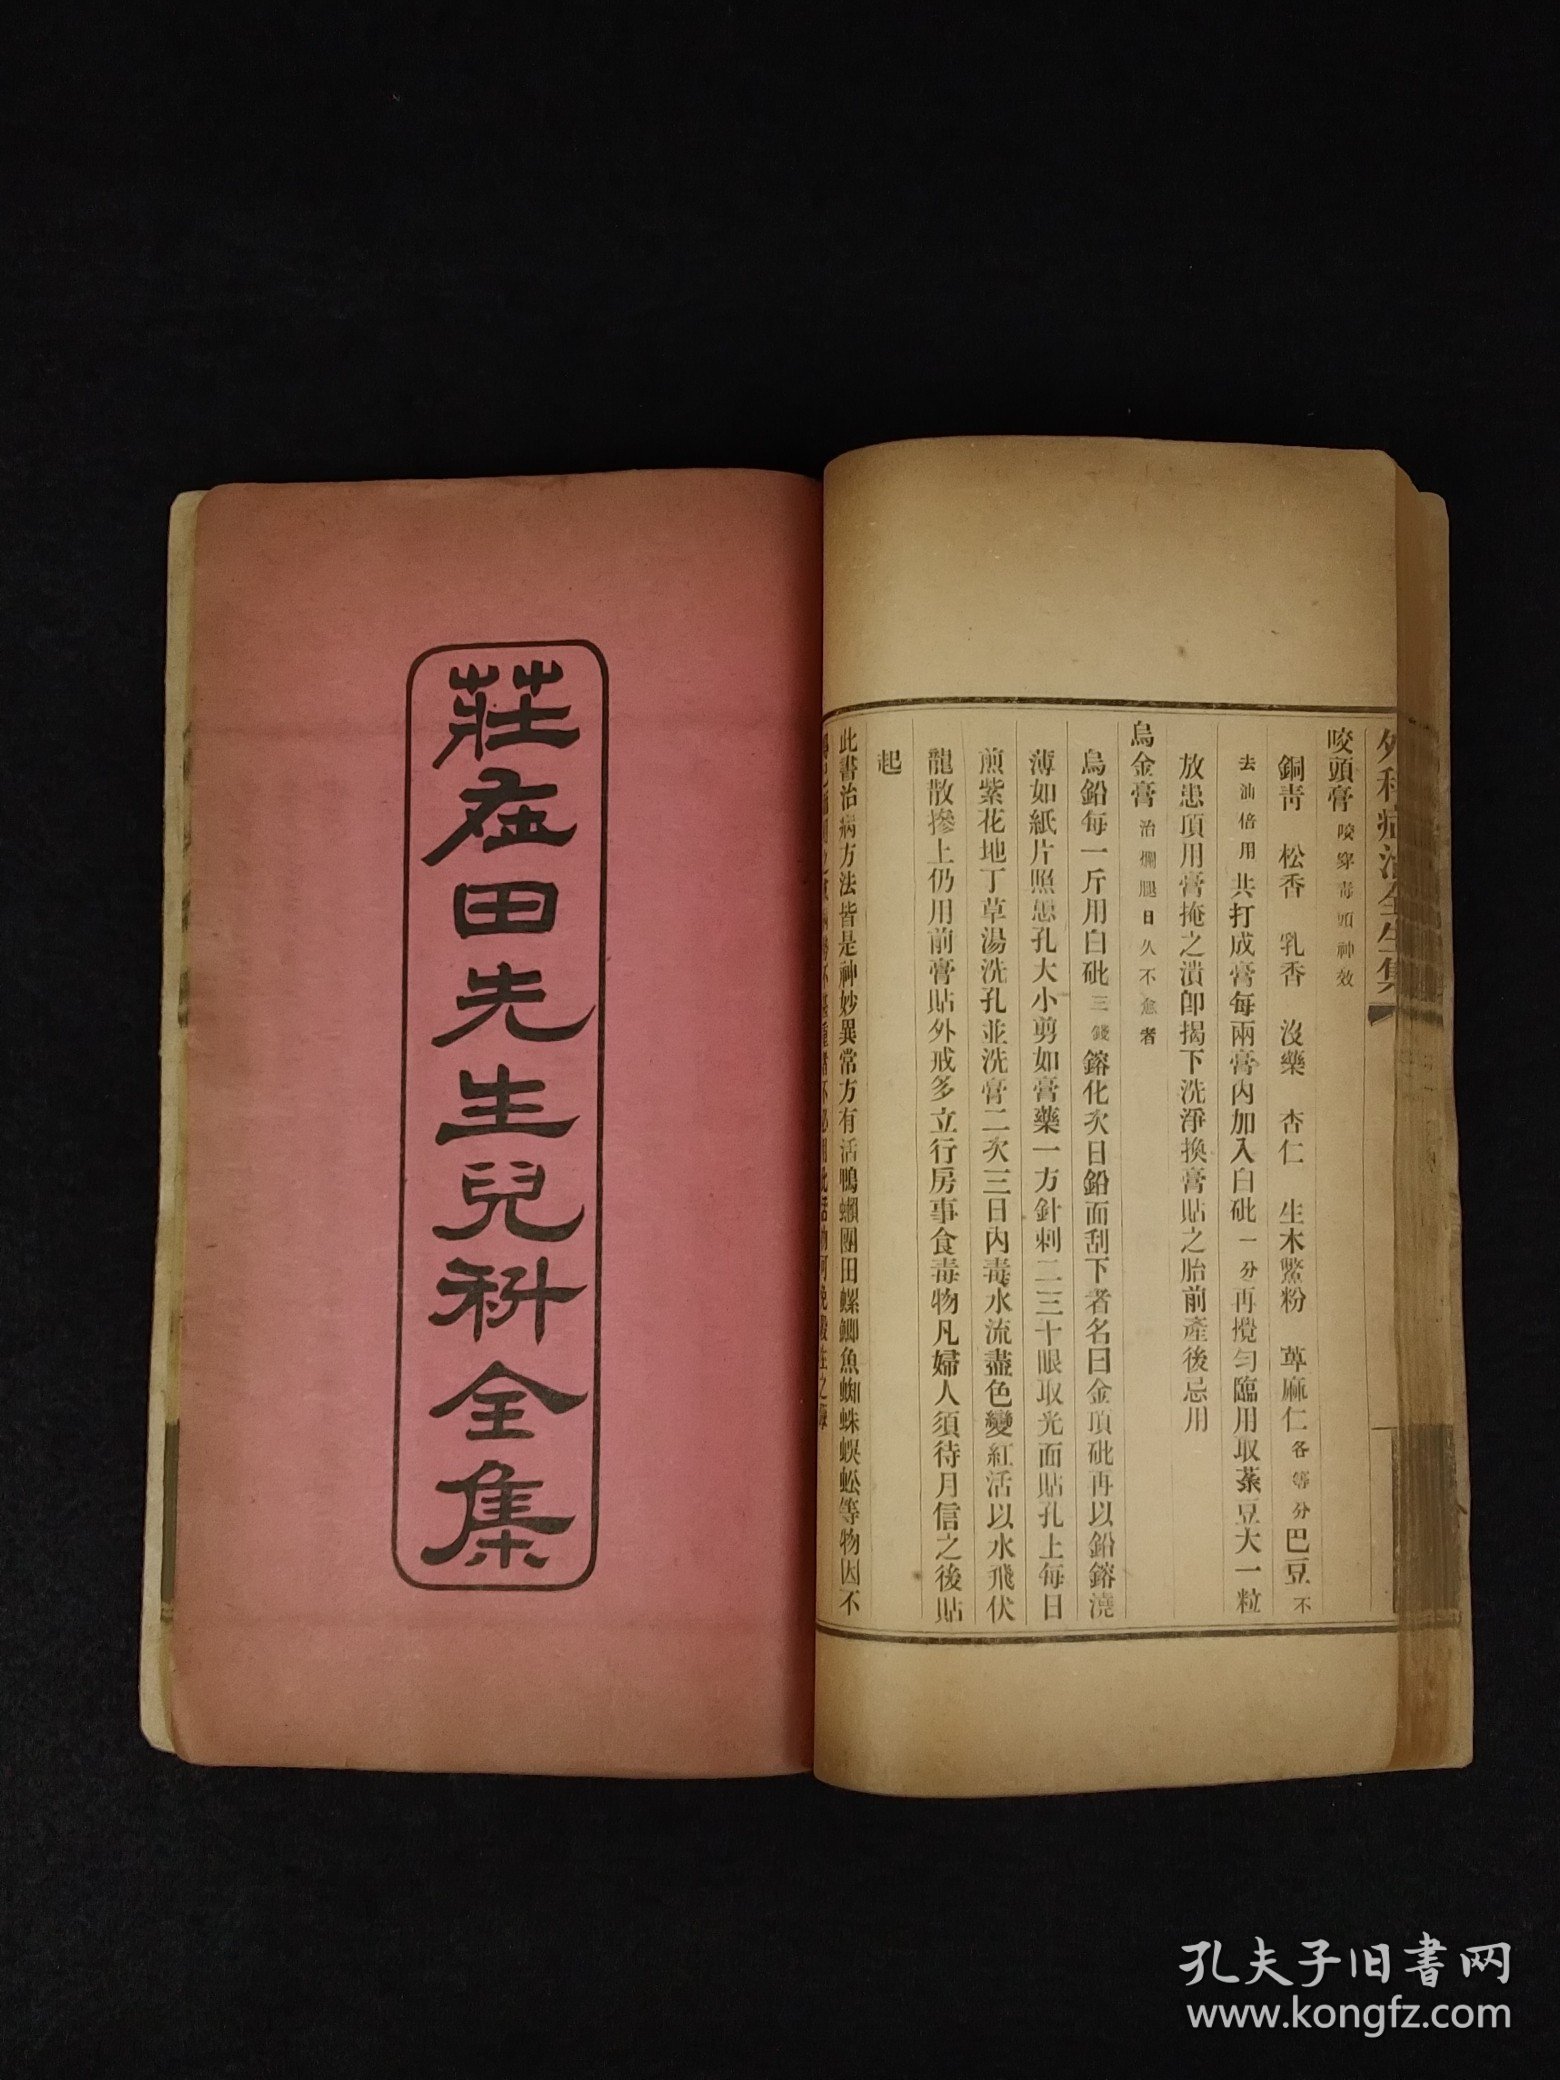 外科症治全生集
咬頭膏咬穿毒頭神效
銅靑　松香　乳香　沒藥　杏仁　生木鱉粉　萆麻仁各等分巴豆不
去油倍用共打成膏每兩膏內加入白砒一分再攪勻臨用取菉豆大一粒
放患頂用膏掩之潰卽揭下洗淨換膏貼之胎前產後忌用
烏金膏治爛腿日久不愈者
烏鉛每一斤用白砒三錢鎔化次日鉛面刮下者名曰金頂砒再以鉛鎔澆
薄如紙片照患孔大小剪如膏藥一方針刺二三十眼取光面貼孔上每日
煎紫花地丁草湯洗孔並洗膏二次三日內毒水流盡色變紅活以水飛伏
龍散摻上仍用前膏貼外戒多立行房事食毒物凡婦人須待月信之後貼
起
此書治病方法皆是神妙異常方有活鴨癩團田螺鯽魚蜘蛛蜈蚣等物因不
莊在田先生兒科全集
孔夫子旧书网
www.kongfz.com